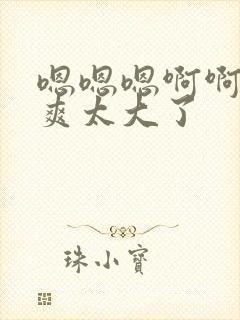 嗯嗯嗯啊啊
爽太大了
珠小寶